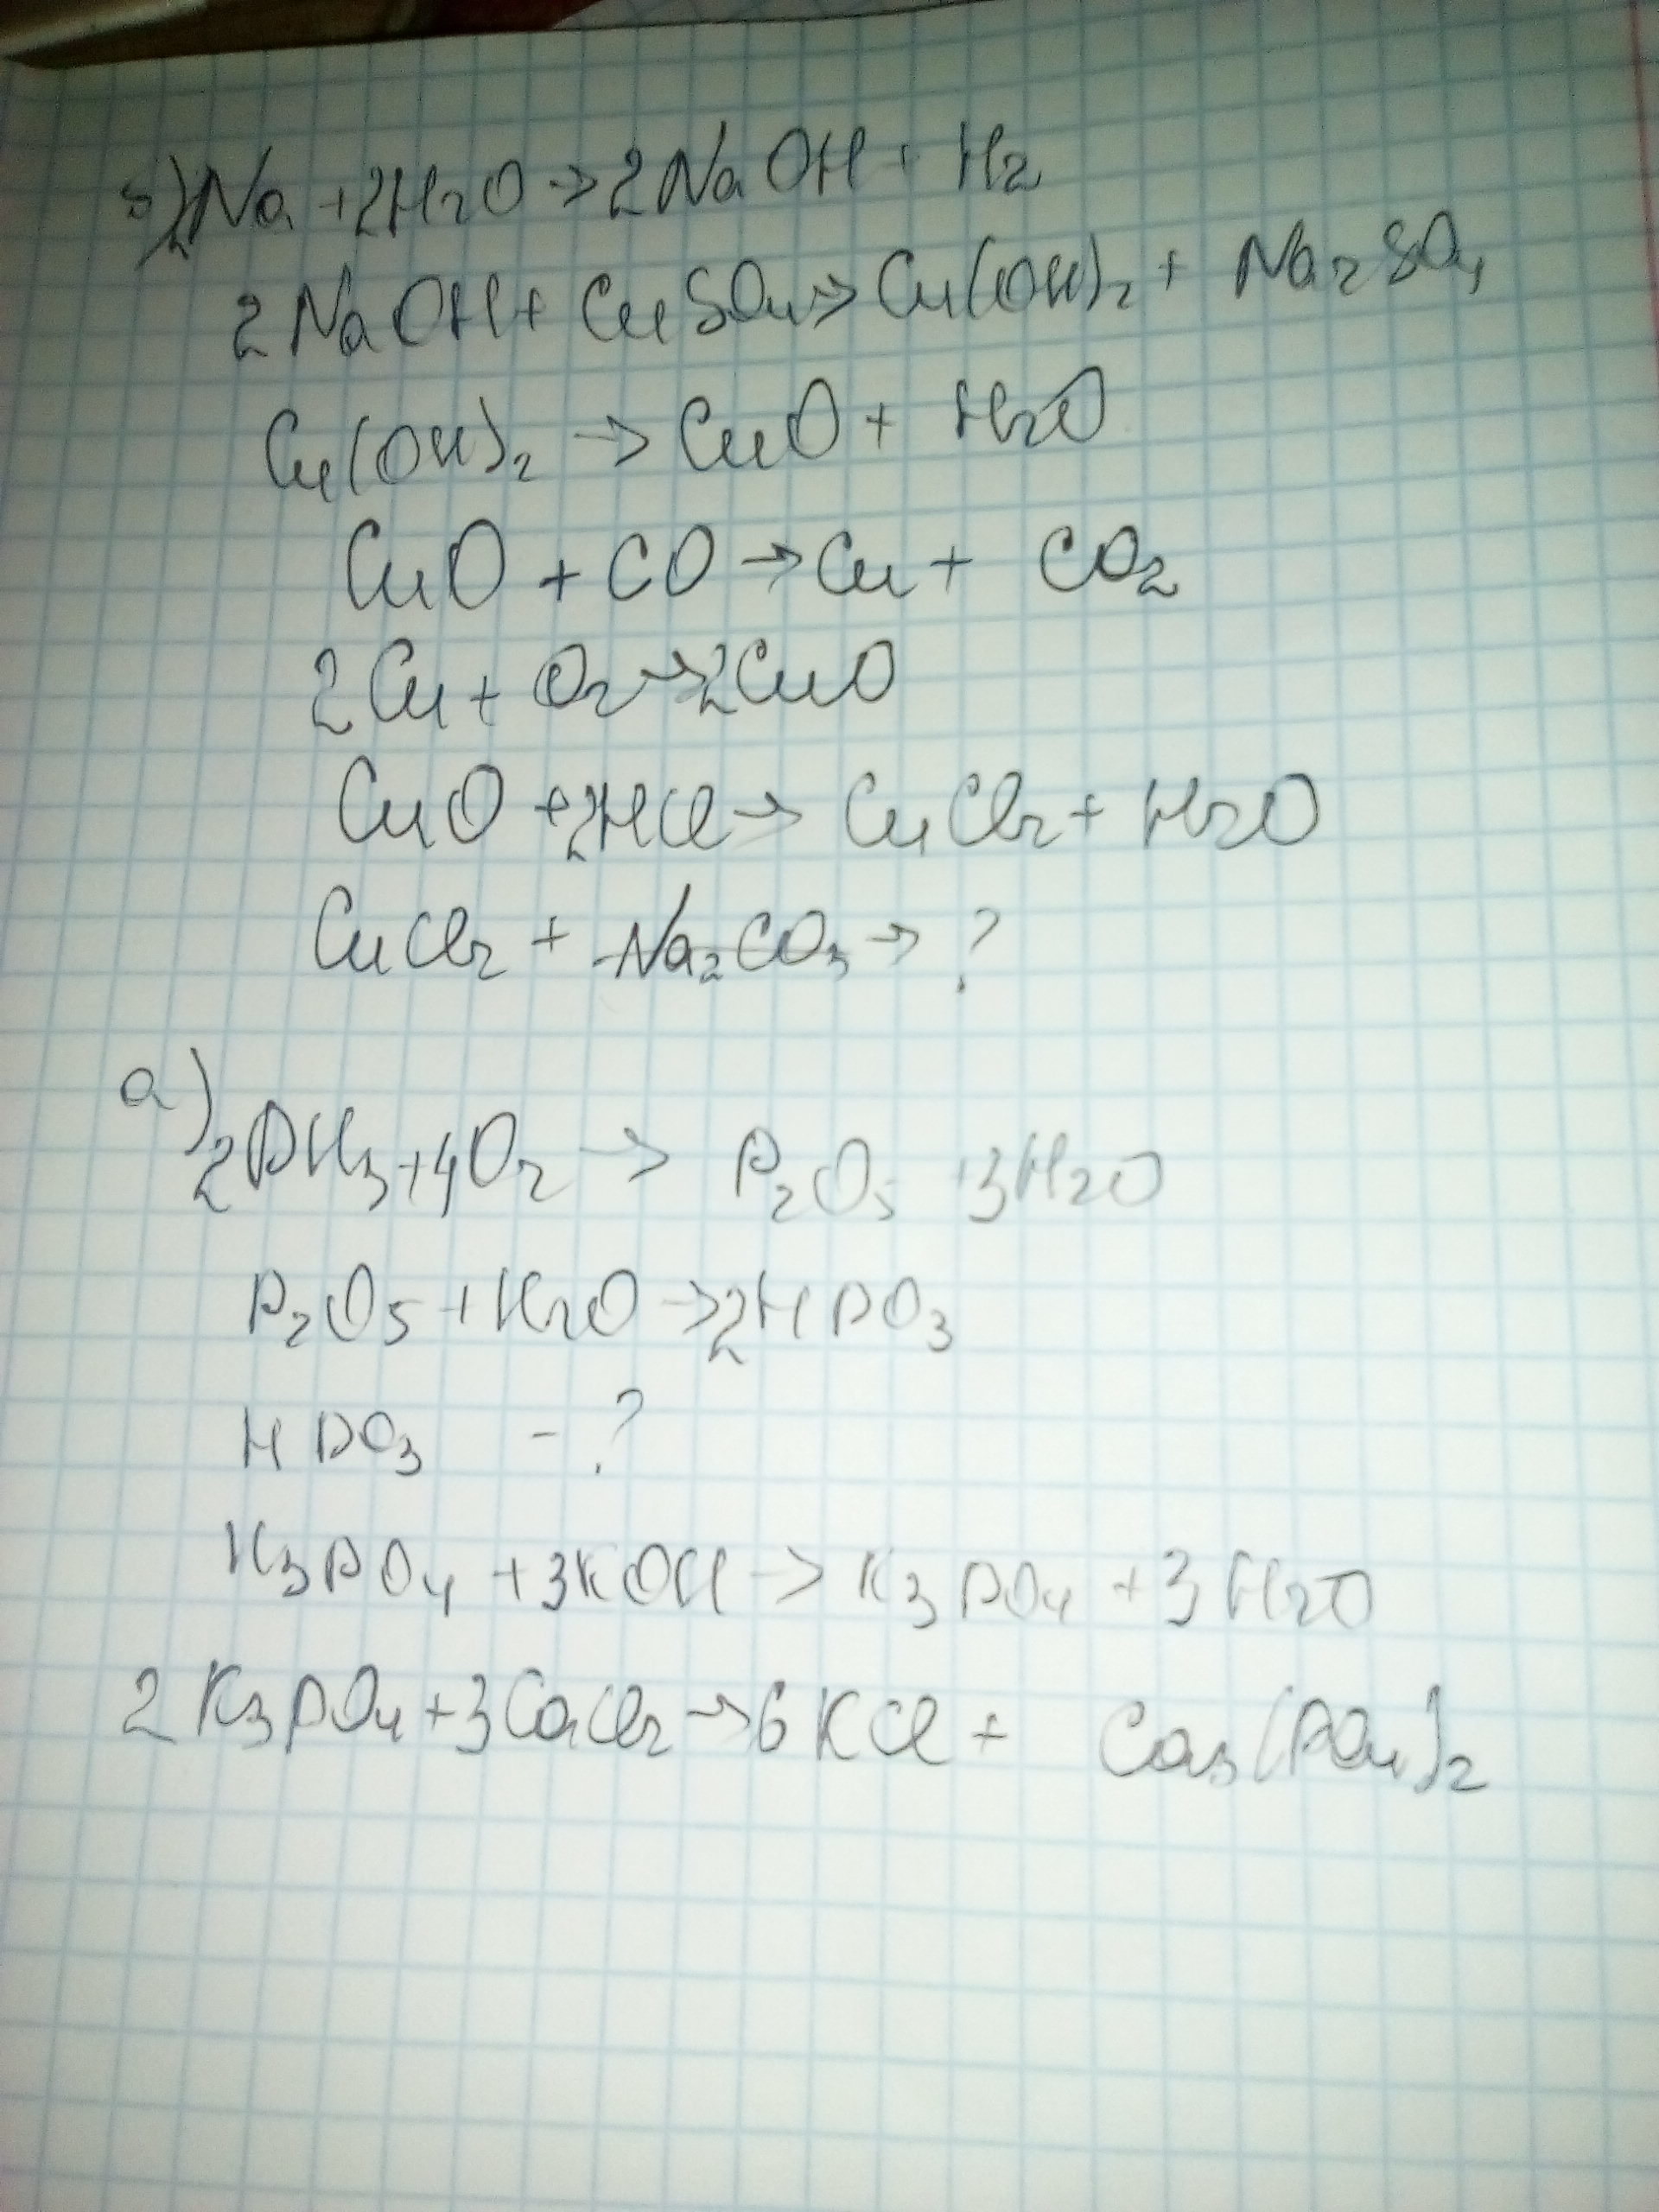 б) 2Na + 2H2O → 2NaOH + H2
2NaOH + CuSO4 → Cu(OH)2 + Na2SO4
Cu(OH)2 → CuO + H2O
CuO + CO → Cu + CO2
2Cu + O2 → 2CuO
CuO + 2HCl → CuCl2 + H2O
CuCl2 + Na2CO3 → ?
а)
2PH3 + 4O2 → P2O5 + 3H2O
P2O5 + H2O → 2HPO3
HPO3 - ?
H3PO4 + 3KOH → K3PO4 + 3H2O
2K3PO4 + 3CaCl2 → 6KCl + Ca3(PO4)2